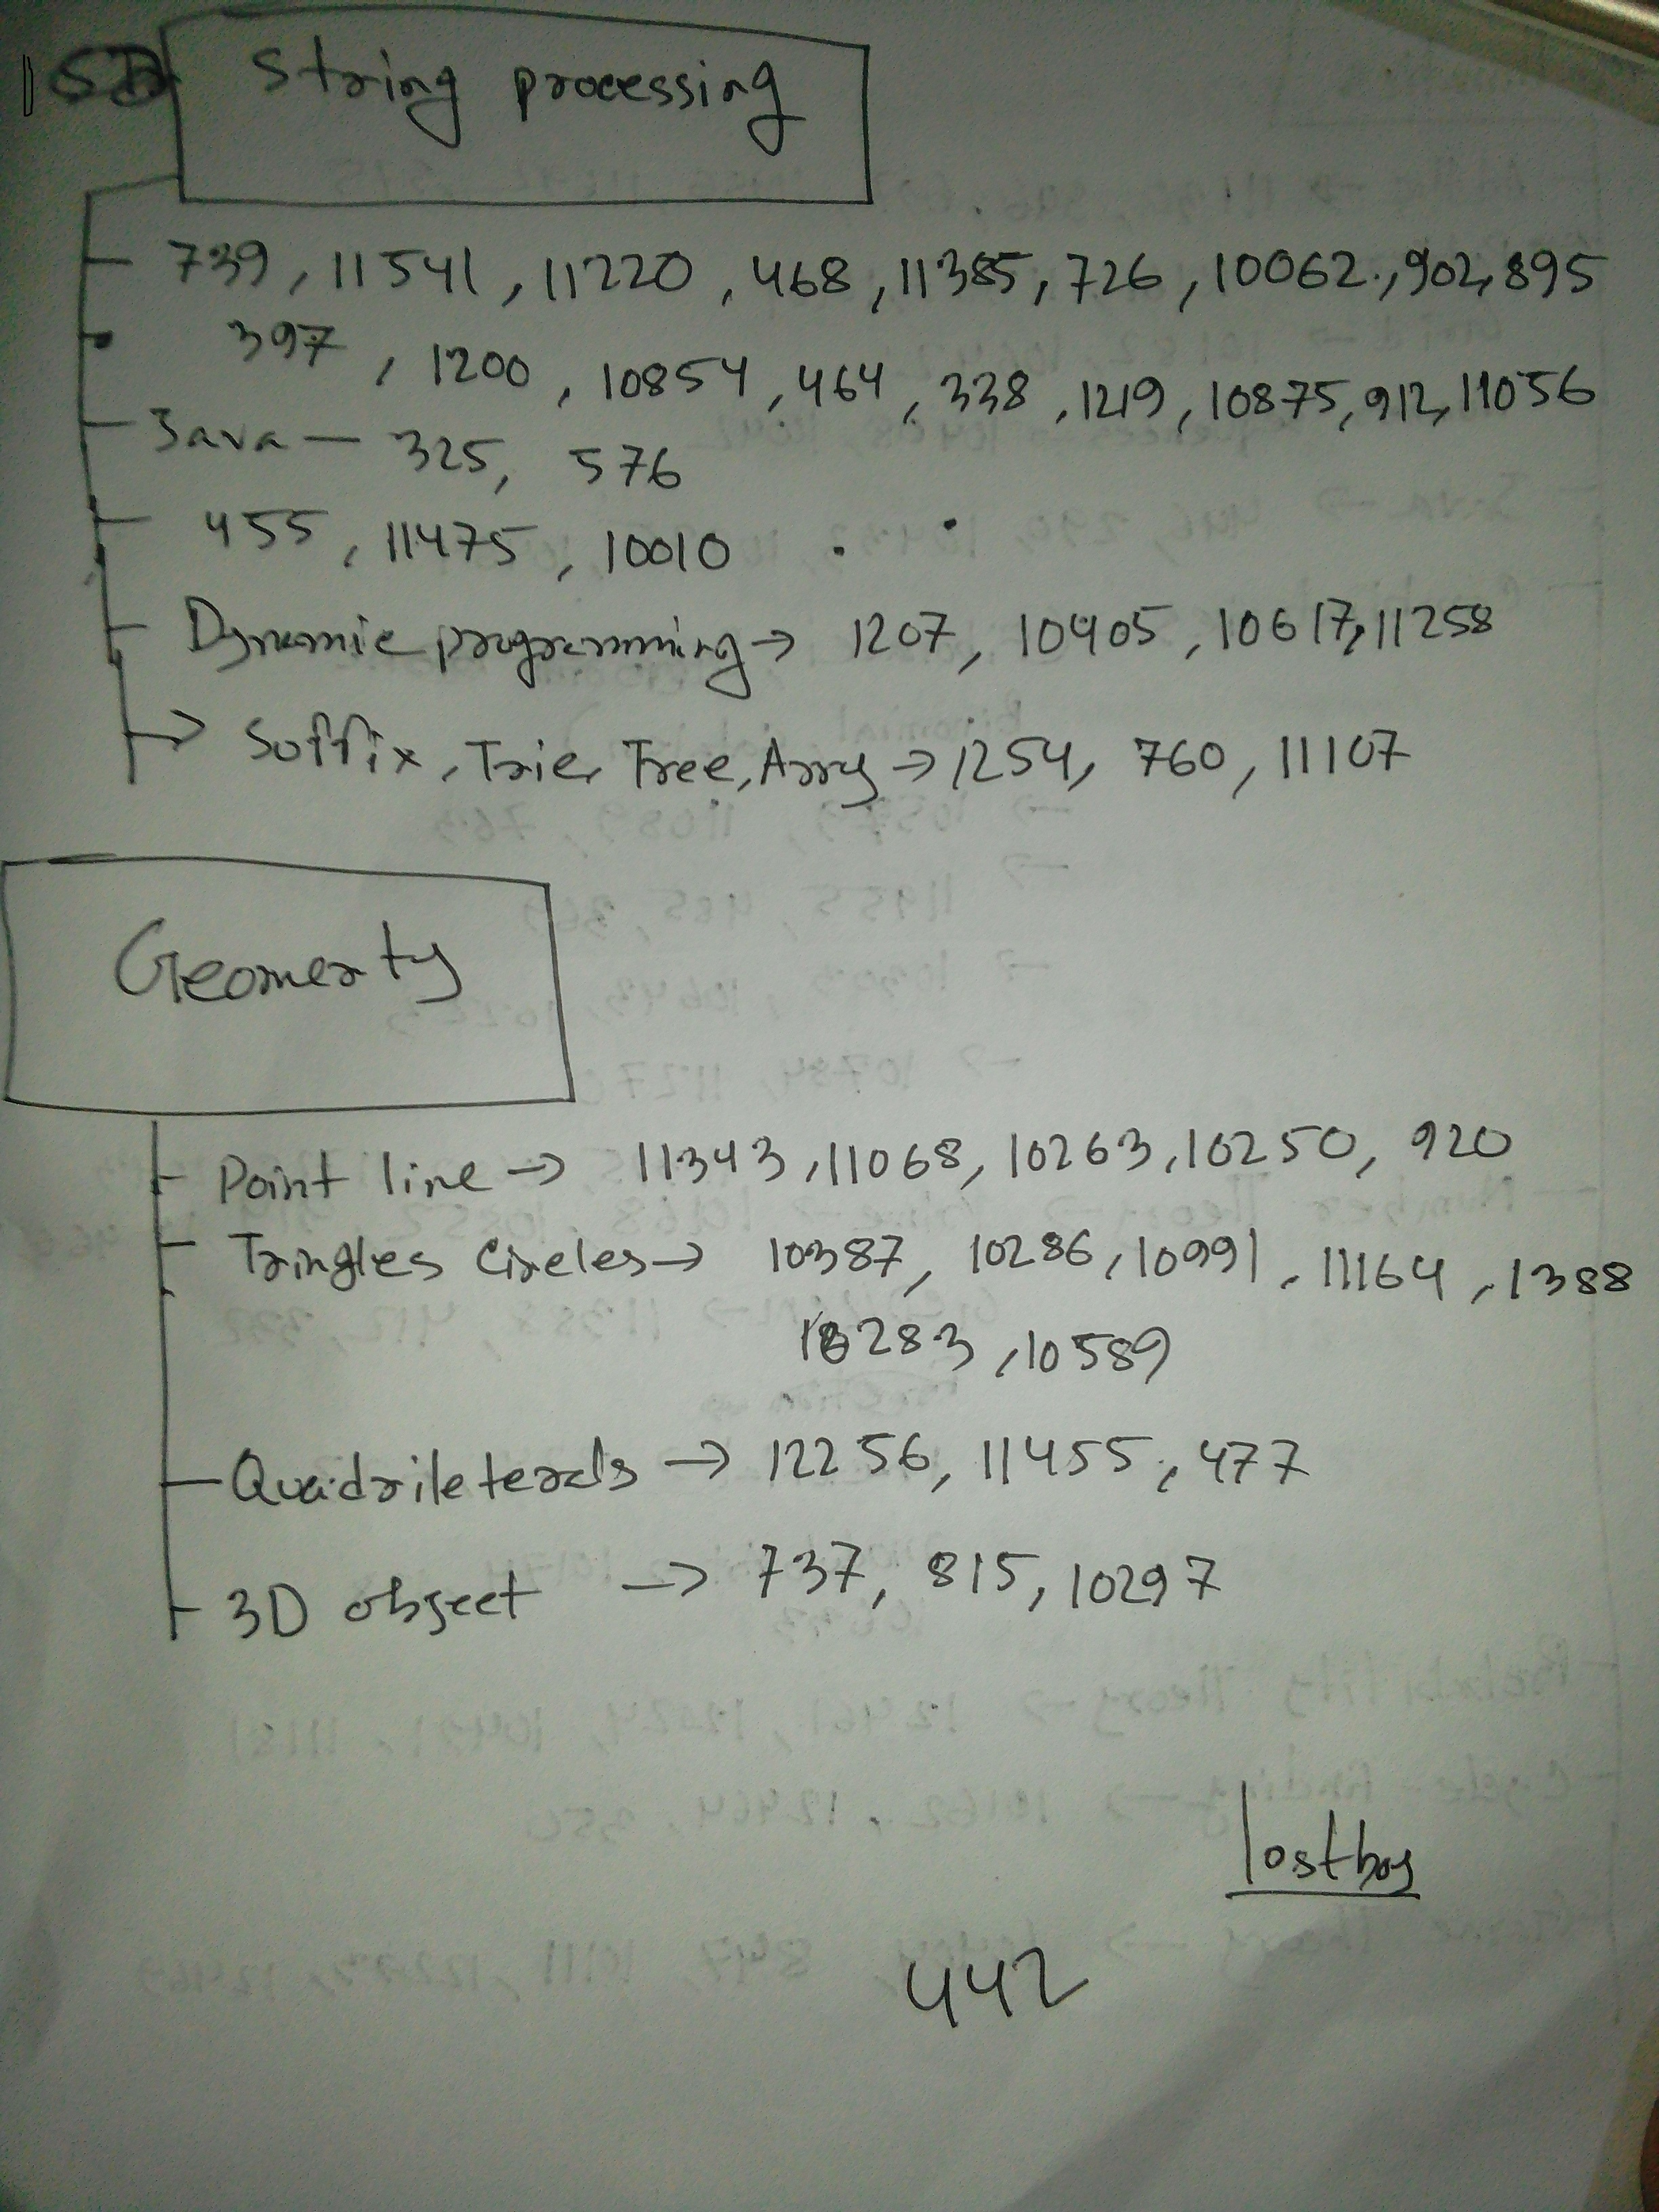 String processing
739, 11541, 11220, 468, 11385, 726, 10062, 902, 895
397, 1200, 10854, 464, 338, 1219, 10875, 912, 11056
Java — 325, 576
455, 11475, 10010
Dynamic programming → 1207, 10405, 10617, 11258
→ Suffix, Trie, Tree, Arry → 1254, 760, 11107
Geomerty
Point line → 11343, 11068, 10263, 10250, 920
Tringles Circles → 10387, 10286, 10991, 11164, 1388
10283, 10589
Quadrileterals → 12256, 11455, 477
3D object → 737, 815, 10297
lostboy
442